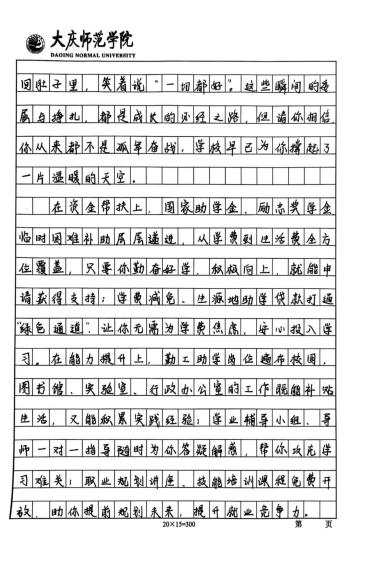 大庆师范学院
DAQING NORMAL UNIVERSITY
回肚子里，笑着说“一切都好”。这些瞬间的
属与挣扎，都是成长的必经之路，但请你相信
你从来都不是孤军奋战，学校早已为你撑起了
一片温暖的天空。
在资金帮扶上，国家助学金、励志奖学金
临时困难补助层层递进，从学费到生活费全方
位覆盖，只要你勤奋好学，积极向上，就能申
请获得支持；学费减免、生源地助学贷款打通
“绿色通道”，让你无需为学费焦虑，安心投入学
习。在能力提升上，勤工助学岗位遍布校园，
图书馆、实验室、行政办公室的工作既能补贴
生活，又能积累实践经验；学业辅导小组、导
师一对一指导随时为你答疑解惑，帮你攻克学
习难关；职业规划讲座、技能培训课程免费开
放，助你提前规划未来，提升就业竞争力。
20×15=300 第 页